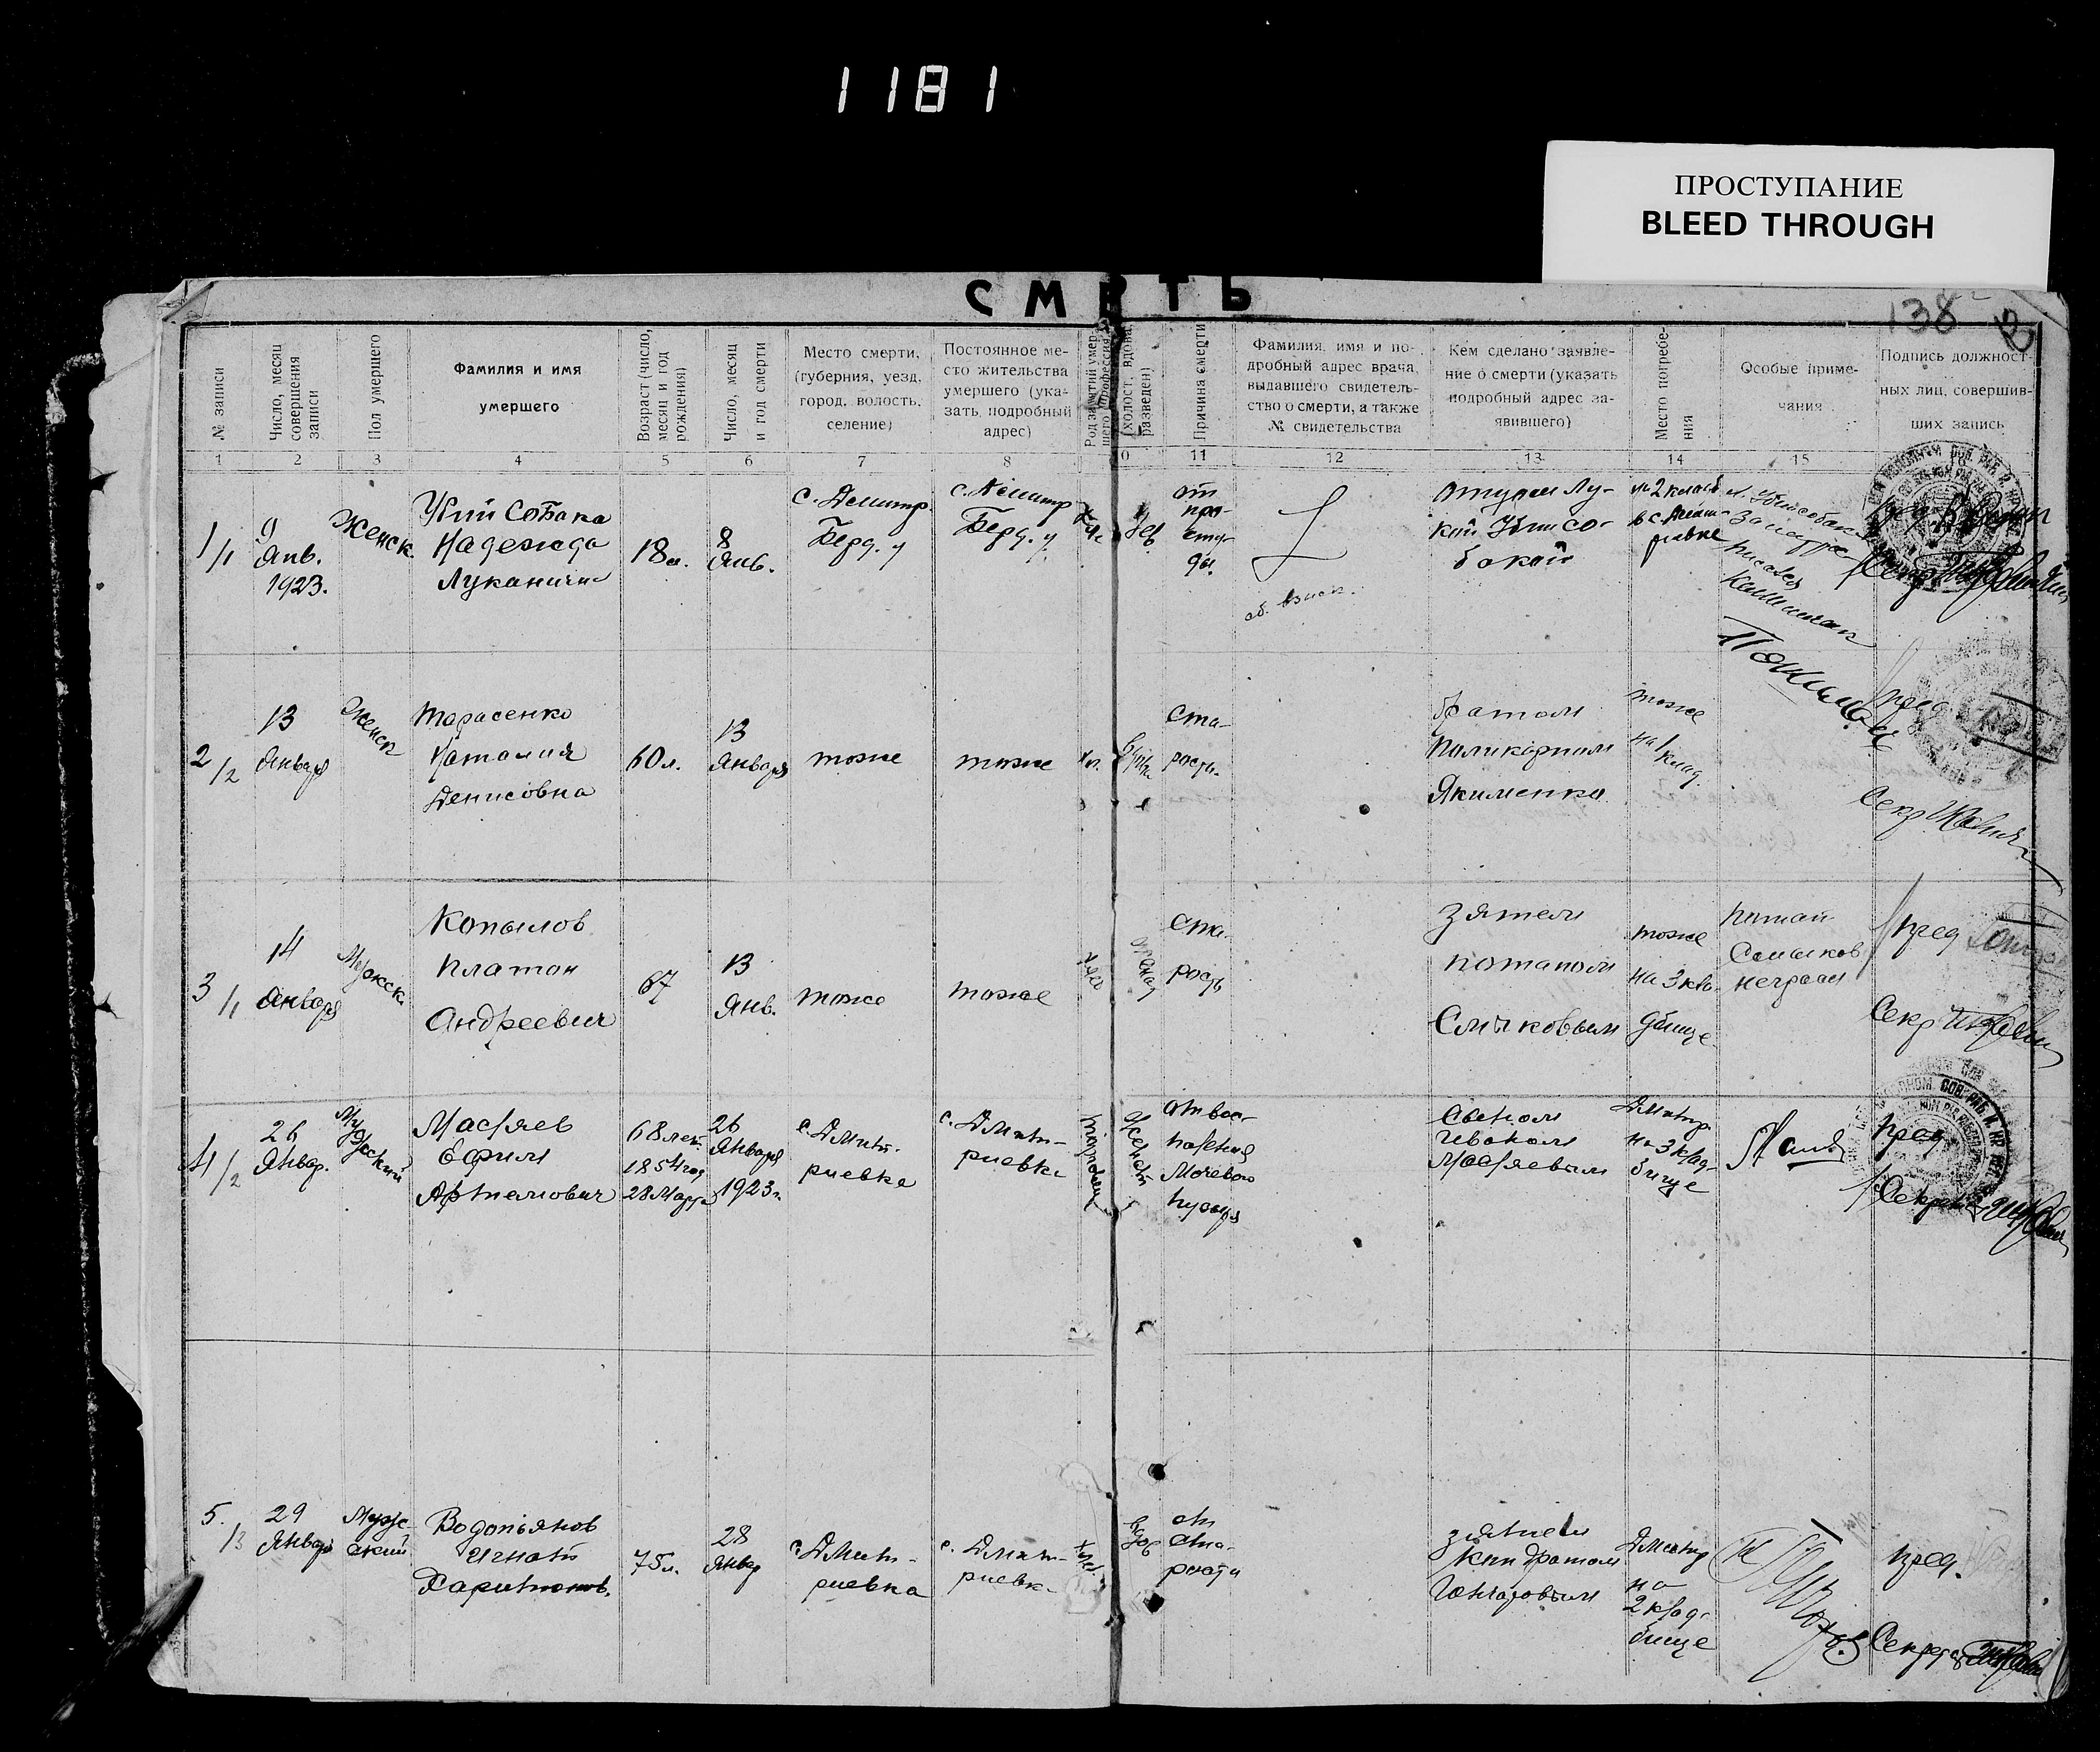 1181
ПРОСТУПАНИЕ
BLEED THROUGH
СМЕРТЬ
138
№ записи
Число, месяц совершения записи
Пол умершего
Фамилия и имя
умершего
Возраст (число, месяц и год рождения)
Число, месяц и год смерти
Место смерти,
(губерния, уезд,
город, волость,
селение)
Постоянное ме-
сто жительства
умершего (ука-
зать подробный
адрес)
Род занятий умер-
шего (профессия)
(холост, вдова, разведен)
Причина смерти
Фамилия, имя и по-
дробный адрес врача,
выдавшего свидетель-
ство о смерти, а также
№ свидетельства
Кем сделано заявле-
ние о смерти (указать
подробный адрес за-
явившего)
Место погребе-
ния
Особые приме-
чания
Подпись должност-
ных лиц, совершив-
ших запись
1 2 3 4 5 6 7 8 0 11 12 13 14 15
1/1
9
Янв.
1923.
Женск.
Убийсобака
Надежда
Лукинична
18 л.
8
Янв.
с. Дмитр.
Берд. у
с. Дмитр
Берд. у
дев
от
про-
сту-
ды.
отцом Лу-
кой Убисо-
бакой
2/2
13
Января
Женск
Тарасенко
Наталия
Денисовна
60 л.
13
Января
тоже
тоже
ста-
рости.
братом
Поликарпом
Якименко
тоже
на 1
клад.
Секр
3/1
14
Января
Мужск.
Копылов
Платон
Андреевич
67
13
Янв.
тоже
тоже
ста-
рость
зятем
Потапом
Смыковым
тоже
на 3 кла-
дбище
Потап
Смыков
неграм
Пред
Секр
4/2
26
Январ.
Мужеский
Масяев
Ефим
Артемович
68 лет
1854 год
28 Март
26
Января
1923 г.
с. Дмит-
риевке
с. Дмит-
риевке
Женат
от вос-
паления
Мочевого
пузыря
Сыном
Иваном
Масяевым
Дмитр
на 3 клад-
бище
Пред
Секрет
5./3
29
Января
Муже-
ский
Водопьянов
Игнат
Харитонов.
75 л.
28
Январ
с. Дмит-
риевка
с. Дмит-
риевк-
вдов
от
ста-
рости
зятем
Кондратом
Гончаровым
Дмитр
на
2 клад-
бище
пред.
Секрет